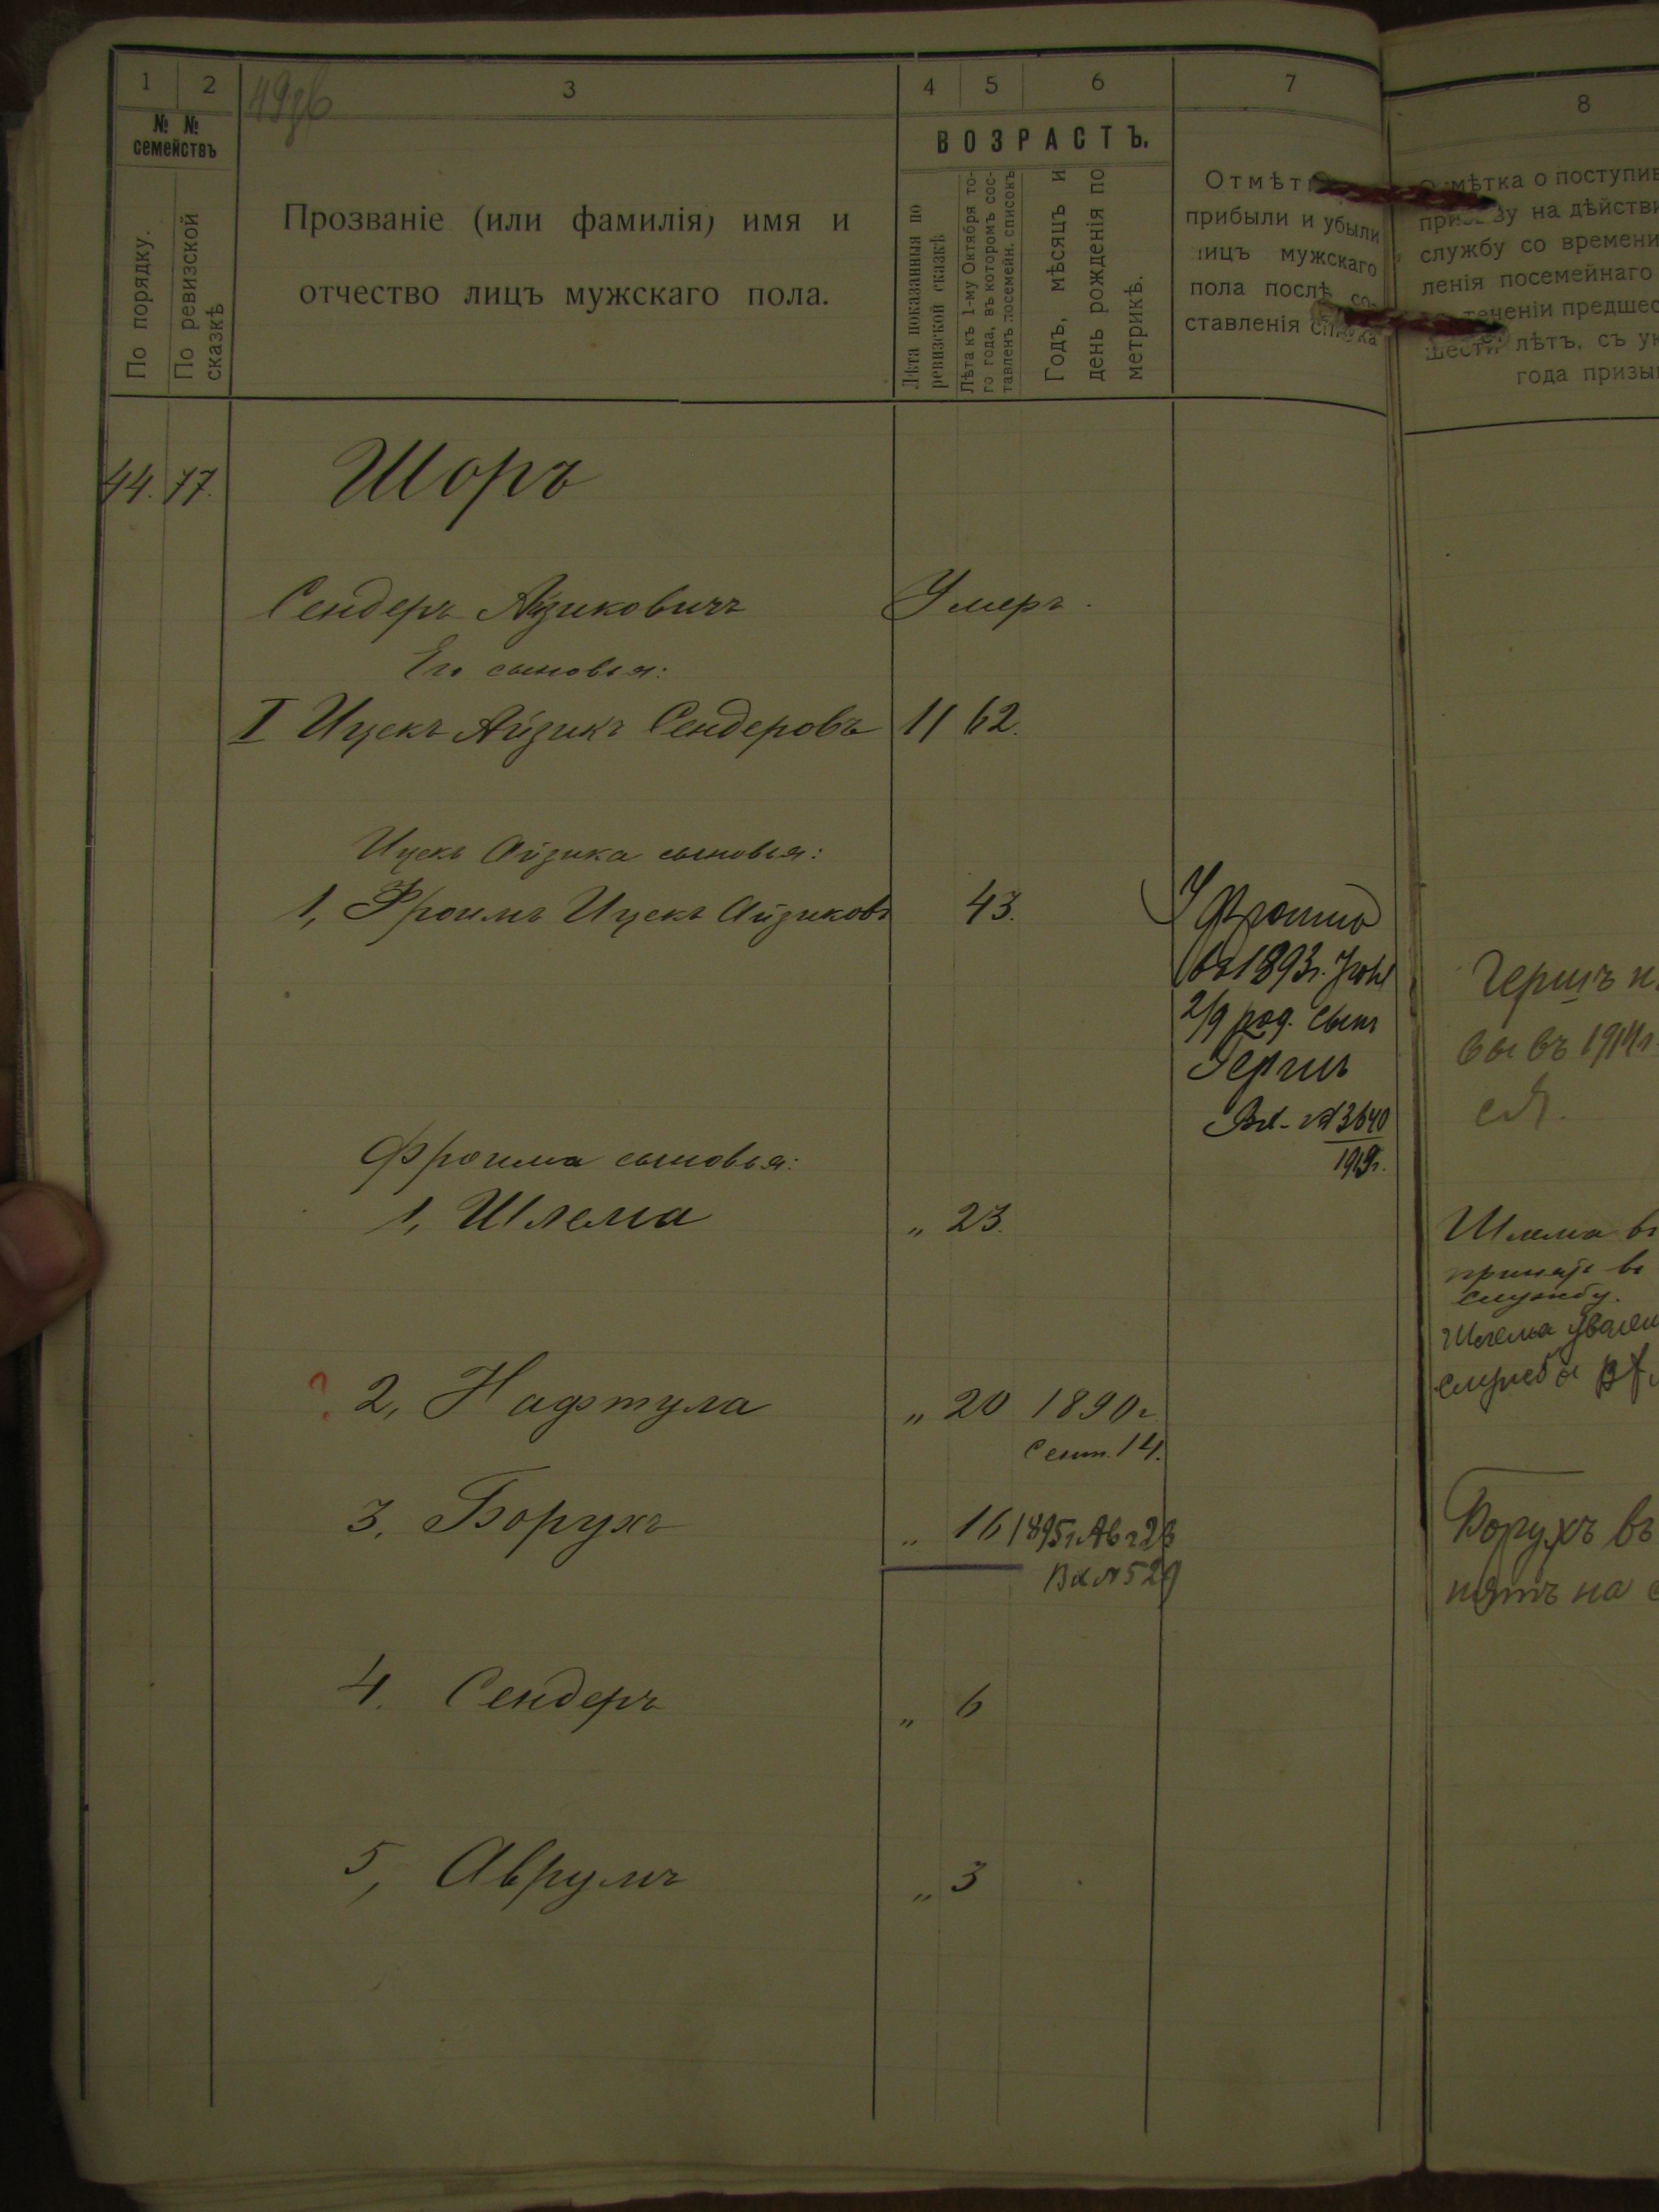 1 2 3 4 5 6 7 8
№ № семействъ
По порядку.
По ревизской сказкѣ
Прозваніе (или фамилія) имя и
отчество лицъ мужскаго пола.
ВОЗРАСТЪ.
Лѣта показанныя по
ревизской сказкѣ
Лѣта къ 1-му Октября то-
го года, въ которомъ сос-
тавленъ посемейн. списокъ
Годъ, мѣсяцъ и
день рожденія по
метрикѣ.
Отмѣт
прибыли и убыли
лицъ мужскаго
пола послѣ со-
ставленія списка
мѣтка о поступив
зу на дѣйстви
службу со времени
ленія посемейнаго
теченіи предшес
шести лѣтъ, съ ук
года призы
44. 77. Шоръ
Сендеръ Айзиковичъ Умеръ.
Его сыновья:
I Ицекъ Айзикъ Сендеровъ 11 62.
Ицекъ Айзика сыновья:
1, Фроимъ Ицекъ Айзиковъ 43.
У Фроима
въ 1893г.
2/9 род. сынъ
Гершъ
Вх. №3640
Гершъ
вы въ 1914г.
Фроима сыновья:
1, Шлема „ 23.
Шлема въ
принятъ въ
службу.
Шлема увален
службы
? 2, Нафтула „ 20 1890г.
Сент. 14.
3. Борухъ „ 16 1895г. Авг 23
Вх №529
Борухъ въ
нятъ на с
4. Сендеръ „ 6
5, Аврумъ „ 3